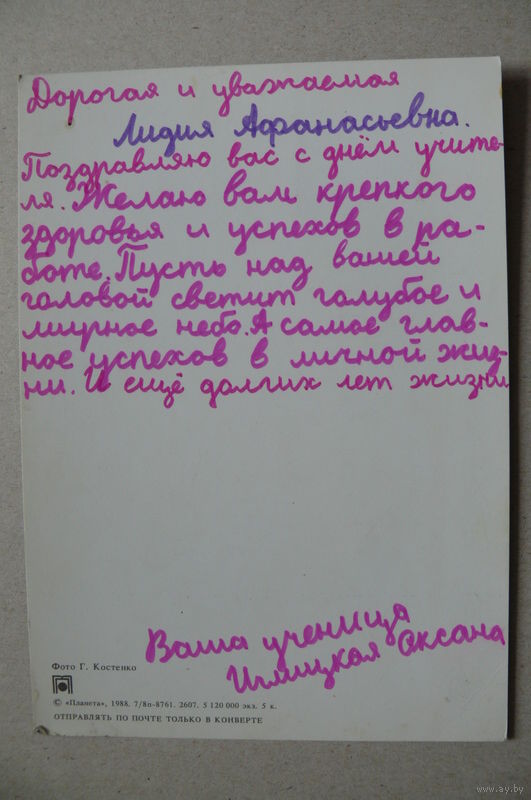 Дорогая и уважаемая
Лидия Афанасьевна.
Поздравляю вас с днём учите-
ля. Желаю вам крепкого
здоровья и успехов в ра-
боте. Пусть над вашей
головой светит голубое и
мирное небо. А самое глав-
ное успехов в личной жиз-
ни. И ещё долгих лет жизни
Ваша ученица
Оксана
Фото Г. Костенко
© «Планета», 1988. 7/8п-8761. 2607. 5 120 000 экз. 5 к.
ОТПРАВЛЯТЬ ПО ПОЧТЕ ТОЛЬКО В КОНВЕРТЕ
www.ay.by